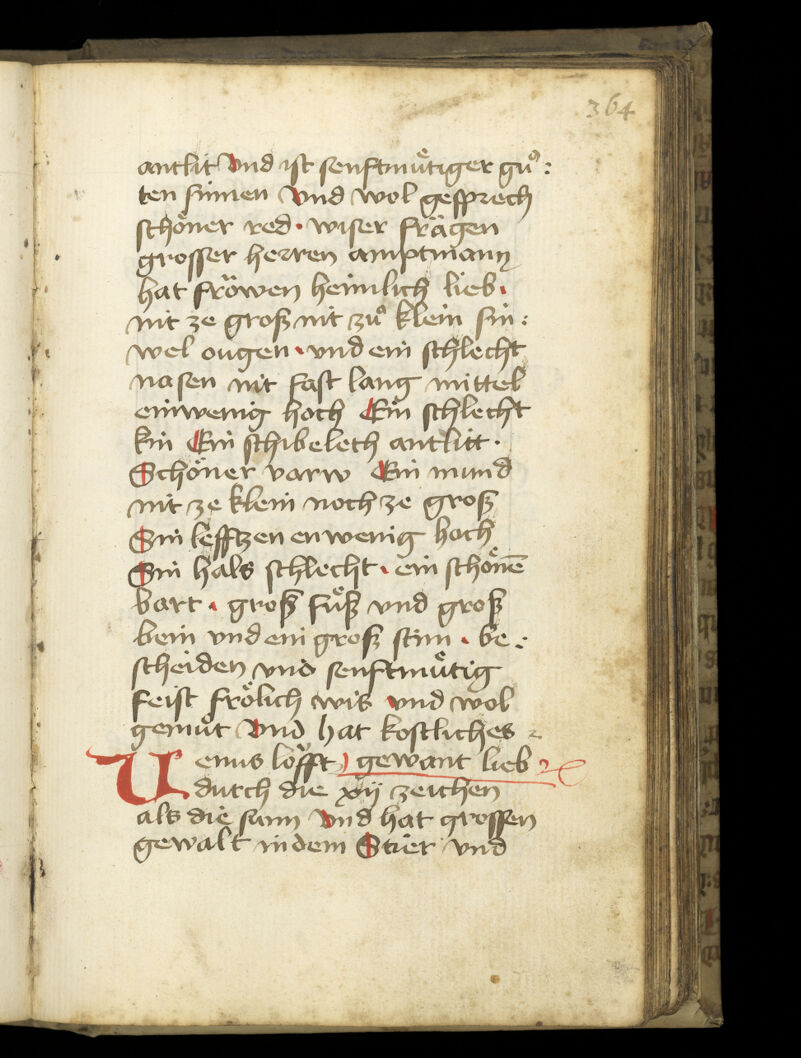 364
antlit vnd ist senftmuͤtiger guͦ:
ten sinnen vnd wol gesprech
schoͤner red · wiser fraͤgen
grosser herren amptmann
hat froͤwen heimlich lieb ·
nit ze groß nit zuͦ klein sin:
wel ougen · vnd ein schlecht
nasen nit fast lang mittel
einwenig hoch Ein schlecht
kin Ein schibelech antlitt ·
Schoͤner varw Ein mund
nit ze klein noch ze groß
Sin lefftzen en wenig hoch
Sin hals schlecht · ein schoͤnē
bart · groß fuͤß vnd groß
bein vnd ein groß stim · be:
scheiden vnd senftmuͤtig
feist froͤlich wis vnd wol
gemuͤt vnd hat kostliches
Uenus loͤfft ) gewant lieb
durch die xij zeichen
als die sunn vnd hat grossen
gewalt in dem Stier vnd